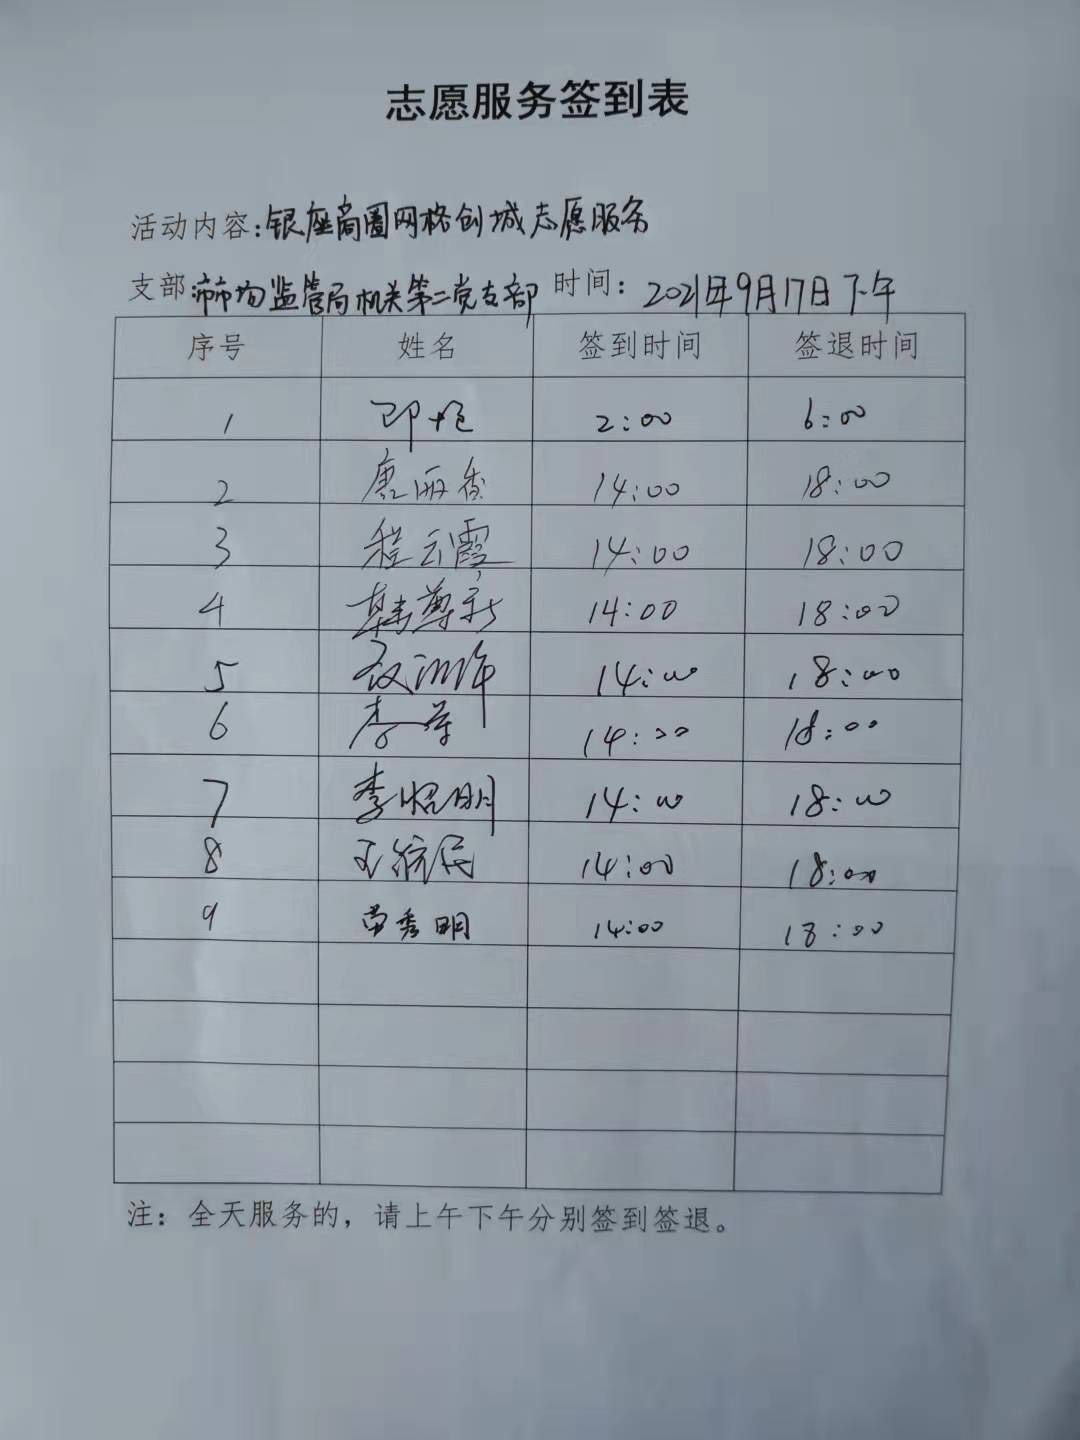 志愿服务签到表
活动内容:银座商圈网格创城志愿服务
支部:沛市场监管局机关第二党支部 时间:2021年9月17日下午
序号 姓名 签到时间 签退时间
1 2:00 6:00
2 唐丽香 14:00 18:00
3 程云霞 14:00 18:00
4 韩尊 14:00 18:00
5 14:00 18:00
6 李 14:00 18:00
7 李昭明 14:00 18:00
8 王 民 14:00 18:00
9 秀明 14:00 18:00
注：全天服务的，请上午下午分别签到签退。